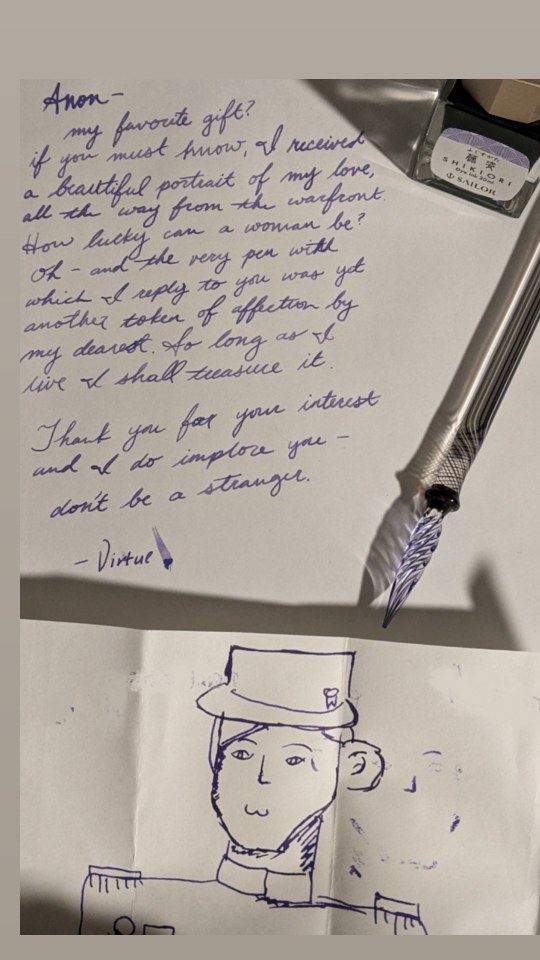 Anon -
my favorite gift?
if you must know, I received
a beautiful portrait of my love,
all the way from the warfront.
How lucky can a woman be?
Oh - and the very pen with
which I reply to you was yet
another token of affection by
my dearest. So long as I
live I shall treasure it.
Thank you for your interest
and I do implore you -
don't be a stranger.
- Virtue
SHIKIORI
SAILOR